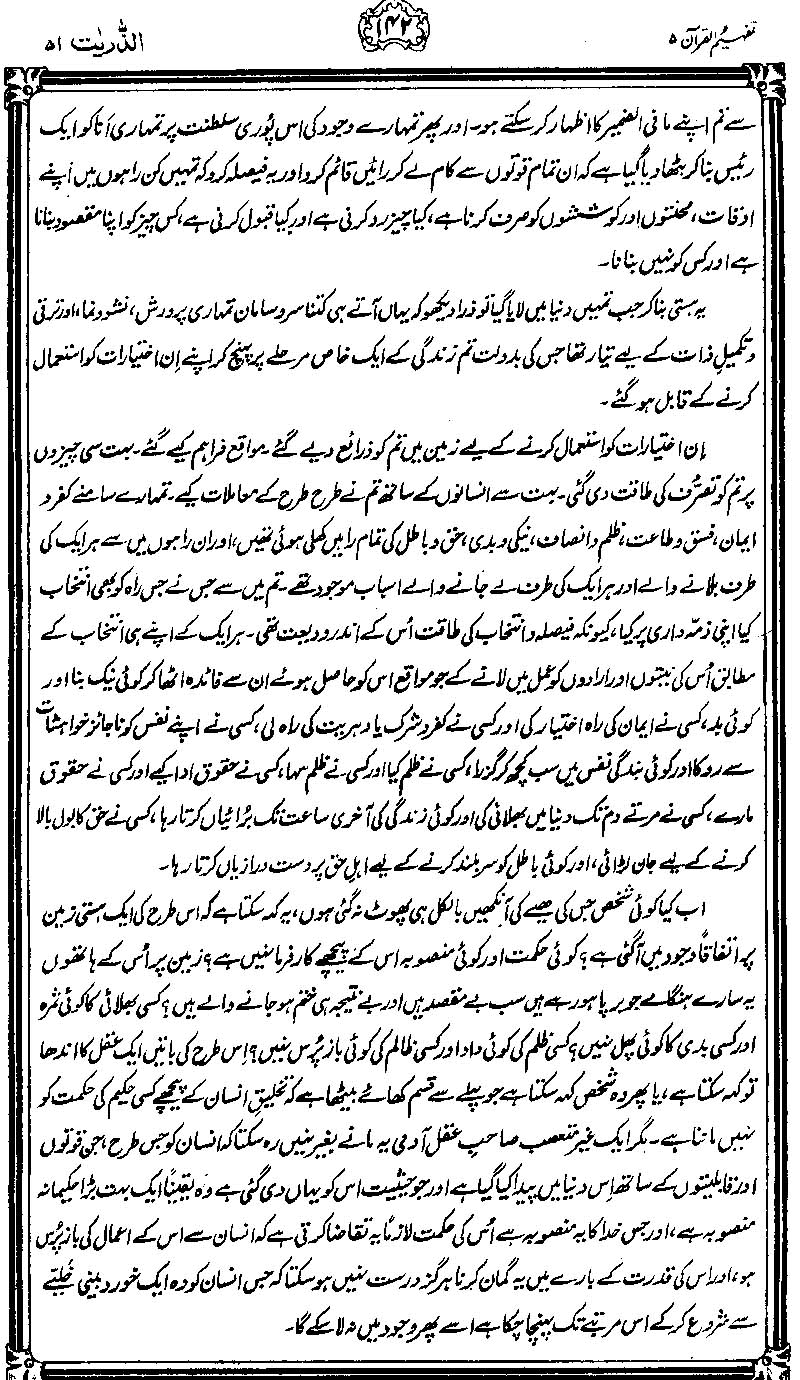 تفہیم القرآن ۵
۱۴۲
الذّٰریٰت ۵۱
سے تم اپنے مافی الضمیر کا اظہار کر سکتے ہو۔ اور پھر تمہارے وجود کی اس پُوری سلطنت پر تمہاری اَنا کو ایک
رئیس بنا کر بٹھا دیا گیا ہے کہ ان تمام قوتوں سے کام لے کر رائیں قائم کرو اور یہ فیصلہ کرو کہ تمہیں کن راہوں میں اپنے
اوقات، محنتوں اور کوششوں کو صرف کرنا ہے، کیا چیز رد کرنی ہے اور کیا قبول کرنی ہے، کس چیز کو اپنا مقصود بنانا
ہے اور کس کو نہیں بنانا۔
یہ ہستی بنا کر جب تمہیں دنیا میں لایا گیا تو ذرا دیکھو کہ یہاں آتے ہی کتنا سروسامان تمہاری پرورش، نشوونما، اور ترقی
و تکمیلِ ذات کے لیے تیار تھا جس کی بدولت تم زندگی کے ایک خاص مرحلے پر پہنچ کر اپنے اِن اختیارات کو استعمال
کرنے کے قابل ہو گئے۔
اِن اختیارات کو استعمال کرنے کے لیے زمین میں تم کو ذرائع دیے گئے۔ مواقع فراہم کیے گئے۔ بہت سی چیزوں
پر تم کو تصرُّف کی طاقت دی گئی۔ بہت سے انسانوں کے ساتھ تم نے طرح طرح کے معاملات کیے۔ تمہارے سامنے کفر و
ایمان، فسق و طاعت، ظلم و انصاف، نیکی و بدی، حق و باطل کی تمام راہیں کھلی ہوئی تھیں، اور ان راہوں میں سے ہر ایک کی
طرف بلانے والے اور ہر ایک کی طرف لے جانے والے اسباب موجود تھے۔ تم میں سے جس نے جس راہ کو بھی انتخاب
کیا اپنی ذمّہ داری پر کیا، کیونکہ فیصلہ و انتخاب کی طاقت اُس کے اندر ودیعت تھی۔ ہر ایک کے اپنے ہی انتخاب کے
مطابق اُس کی نیتوں اور ارادوں کو عمل میں لانے کے جو مواقع اس کو حاصل ہوئے ان سے فائدہ اٹھا کر کوئی نیک بنا اور
کوئی بد، کسی نے ایمان کی راہ اختیار کی اور کسی نے کفر و شرک یا دہریت کی راہ لی، کسی نے اپنے نفس کو ناجائز خواہشات
سے روکا اور کوئی بندگیِ نفس میں سب کچھ کر گزرا، کسی نے ظلم کیا اور کسی نے ظلم سہا، کسی نے حقوق ادا کیے اور کسی نے حقوق
مارے، کسی نے مرتے دم تک دنیا میں بھلائی کی اور کوئی زندگی کی آخری ساعت تک برائیاں کرتا رہا، کسی نے حق کا بول بالا
کرنے کے لیے جان لڑائی، اور کوئی باطل کو سربلند کرنے کے لیے اہلِ حق پر دست درازیاں کرتا رہا۔
اب کیا کوئی شخص جس کی ھیے کی آنکھیں بالکل ہی پھوٹ نہ گئی ہوں، یہ کہہ سکتا ہے کہ اس طرح کی ایک ہستی زمین
پر اتفاقاً وجود میں آگئی ہے؟ کوئی حکمت اور کوئی منصوبہ اس کے پیچھے کارفرما نہیں ہے؟ زمین پر اُس کے ہاتھوں
یہ سارے ہنگامے جو برپا ہو رہے ہیں سب بے مقصد ہیں اور بے نتیجہ ہی ختم ہو جانے والے ہیں؟ کسی بھلائی کا کوئی ثمرہ
اور کسی بدی کا کوئی پھل نہیں؟ کسی ظلم کی کوئی داد اور کسی ظالم کی کوئی بازپُرس نہیں؟ اِس طرح کی باتیں ایک عقل کا اندھا
تو کہہ سکتا ہے، یا پھر وہ شخص کہہ سکتا ہے جو پہلے سے قسم کھائے بیٹھا ہے کہ تخلیقِ انسان کے پیچھے کسی حکیم کی حکمت کو
نہیں ماننا ہے۔ مگر ایک غیر متعصب صاحبِ عقل آدمی یہ مانے بغیر نہیں رہ سکتا کہ انسان کو جس طرح، جن قوتوں
اور قابلیتوں کے ساتھ اِس دنیا میں پیدا کیا گیا ہے اور جو حیثیت اس کو یہاں دی گئی ہے وہ یقیناً ایک بہت بڑا حکیمانہ
منصوبہ ہے، اور جس خدا کا یہ منصوبہ ہے اُس کی حکمت لازماً یہ تقاضا کرتی ہے کہ انسان سے اس کے اعمال کی بازپُرس
ہو، اور اس کی قدرت کے بارے میں یہ گمان کرنا ہرگز درست نہیں ہو سکتا کہ جس انسان کو وہ ایک خوردبینی خُلیّے
سے شروع کر کے اس مرتبے تک پہنچا چکا ہے اسے پھر وجود میں نہ لا سکے گا۔